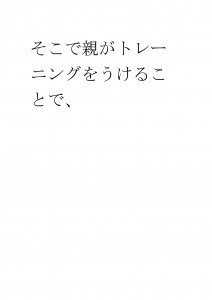 そこで親がトレー
ニングをうけるこ
とで、